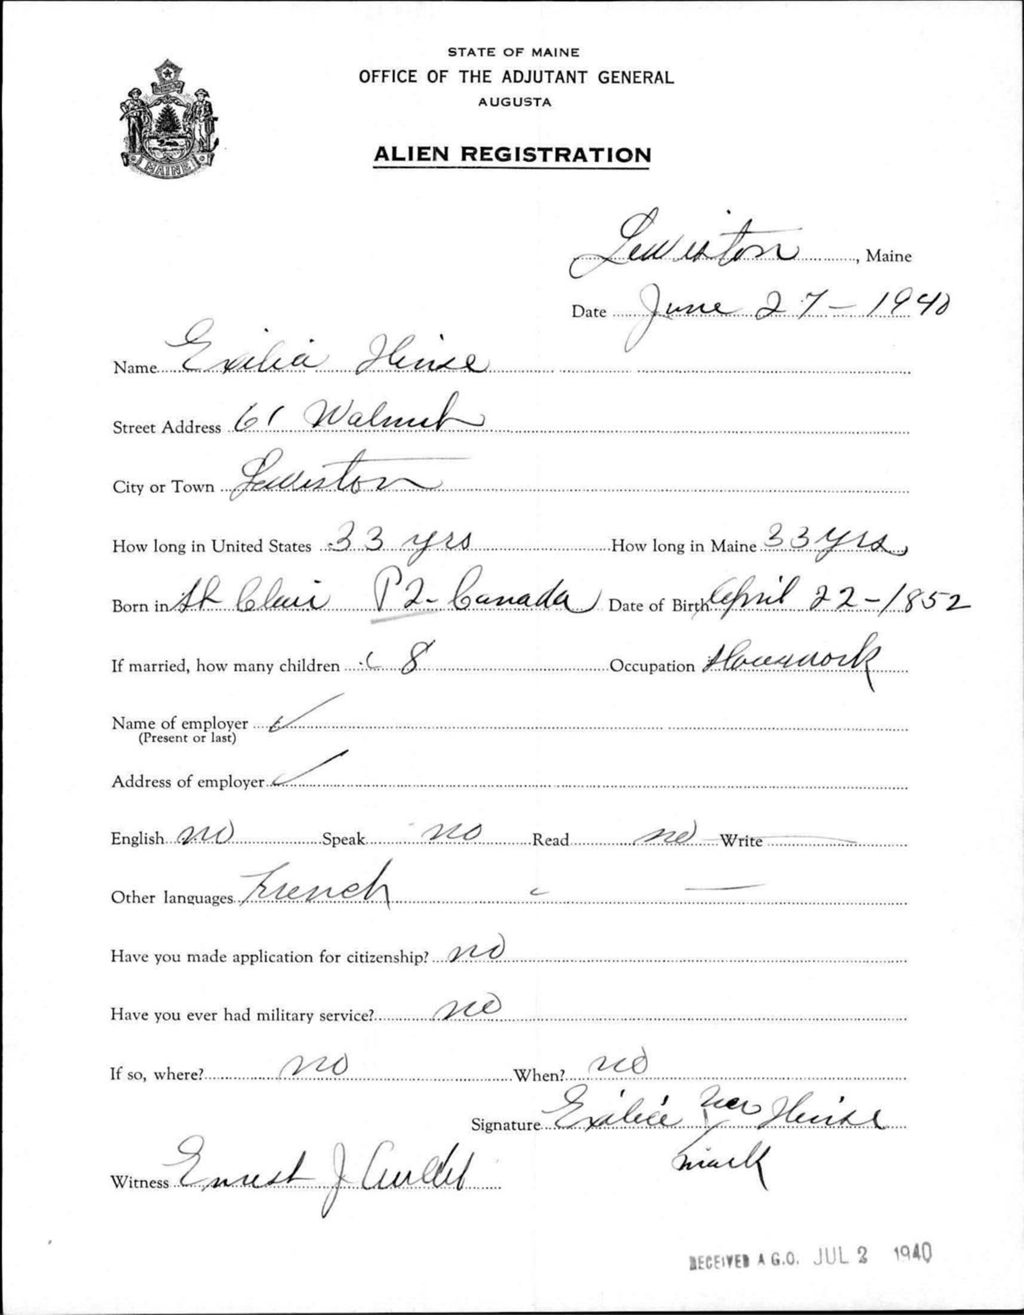 STATE OF MAINE
OFFICE OF THE ADJUTANT GENERAL
AUGUSTA
ALIEN REGISTRATION
MAINE
Lewiston, Maine
Date June 27-1940
Name Exilia Hinse
Street Address 61 Walnut
City or Town Lewiston
How long in United States 33 yrs How long in Maine 33 yrs
Born in St Clair P2- Canada Date of Birth April 22-1852
If married, how many children 8 Occupation Housework
Name of employer
(Present or last)
Address of employer
English no Speak no Read no Write
Other languages French
Have you made application for citizenship? no
Have you ever had military service? no
If so, where? no When? no
Signature Exilia her Hinse
X
mark
Witness Ernest J
RECEIVED A.G.O. JUL 2 1940